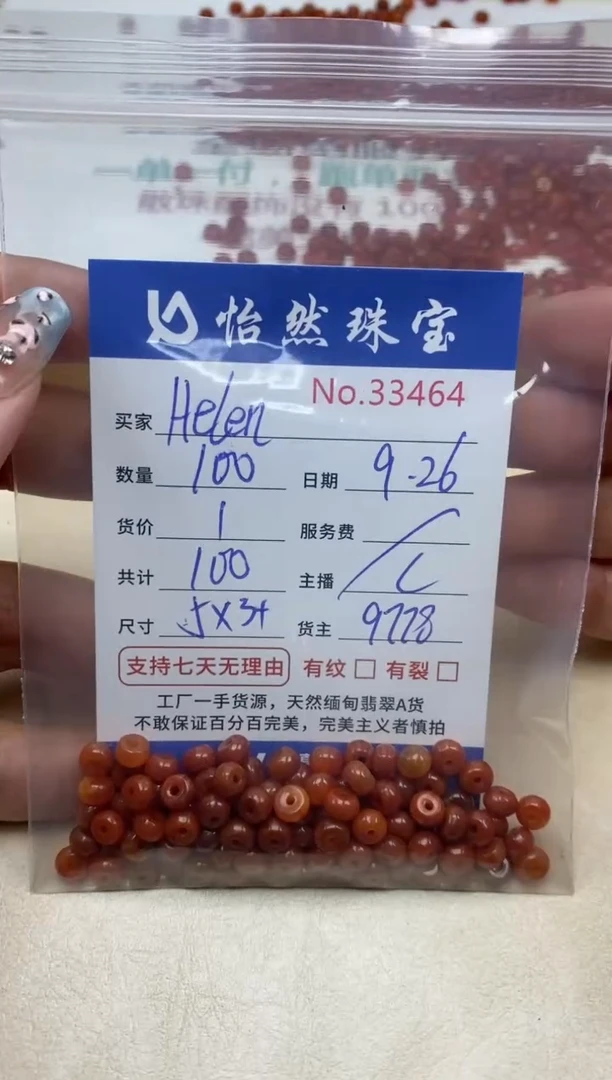 怡然珠宝
No.33464
买家 Helen
数量 100 日期 9-26
货价 1 服务费 /
共计 100 主播 L
尺寸 5X3+ 货主 9778
支持七天无理由 有纹 □ 有裂 □
工厂一手货源，天然缅甸翡翠A货
不敢保证百分百完美，完美主义者慎拍